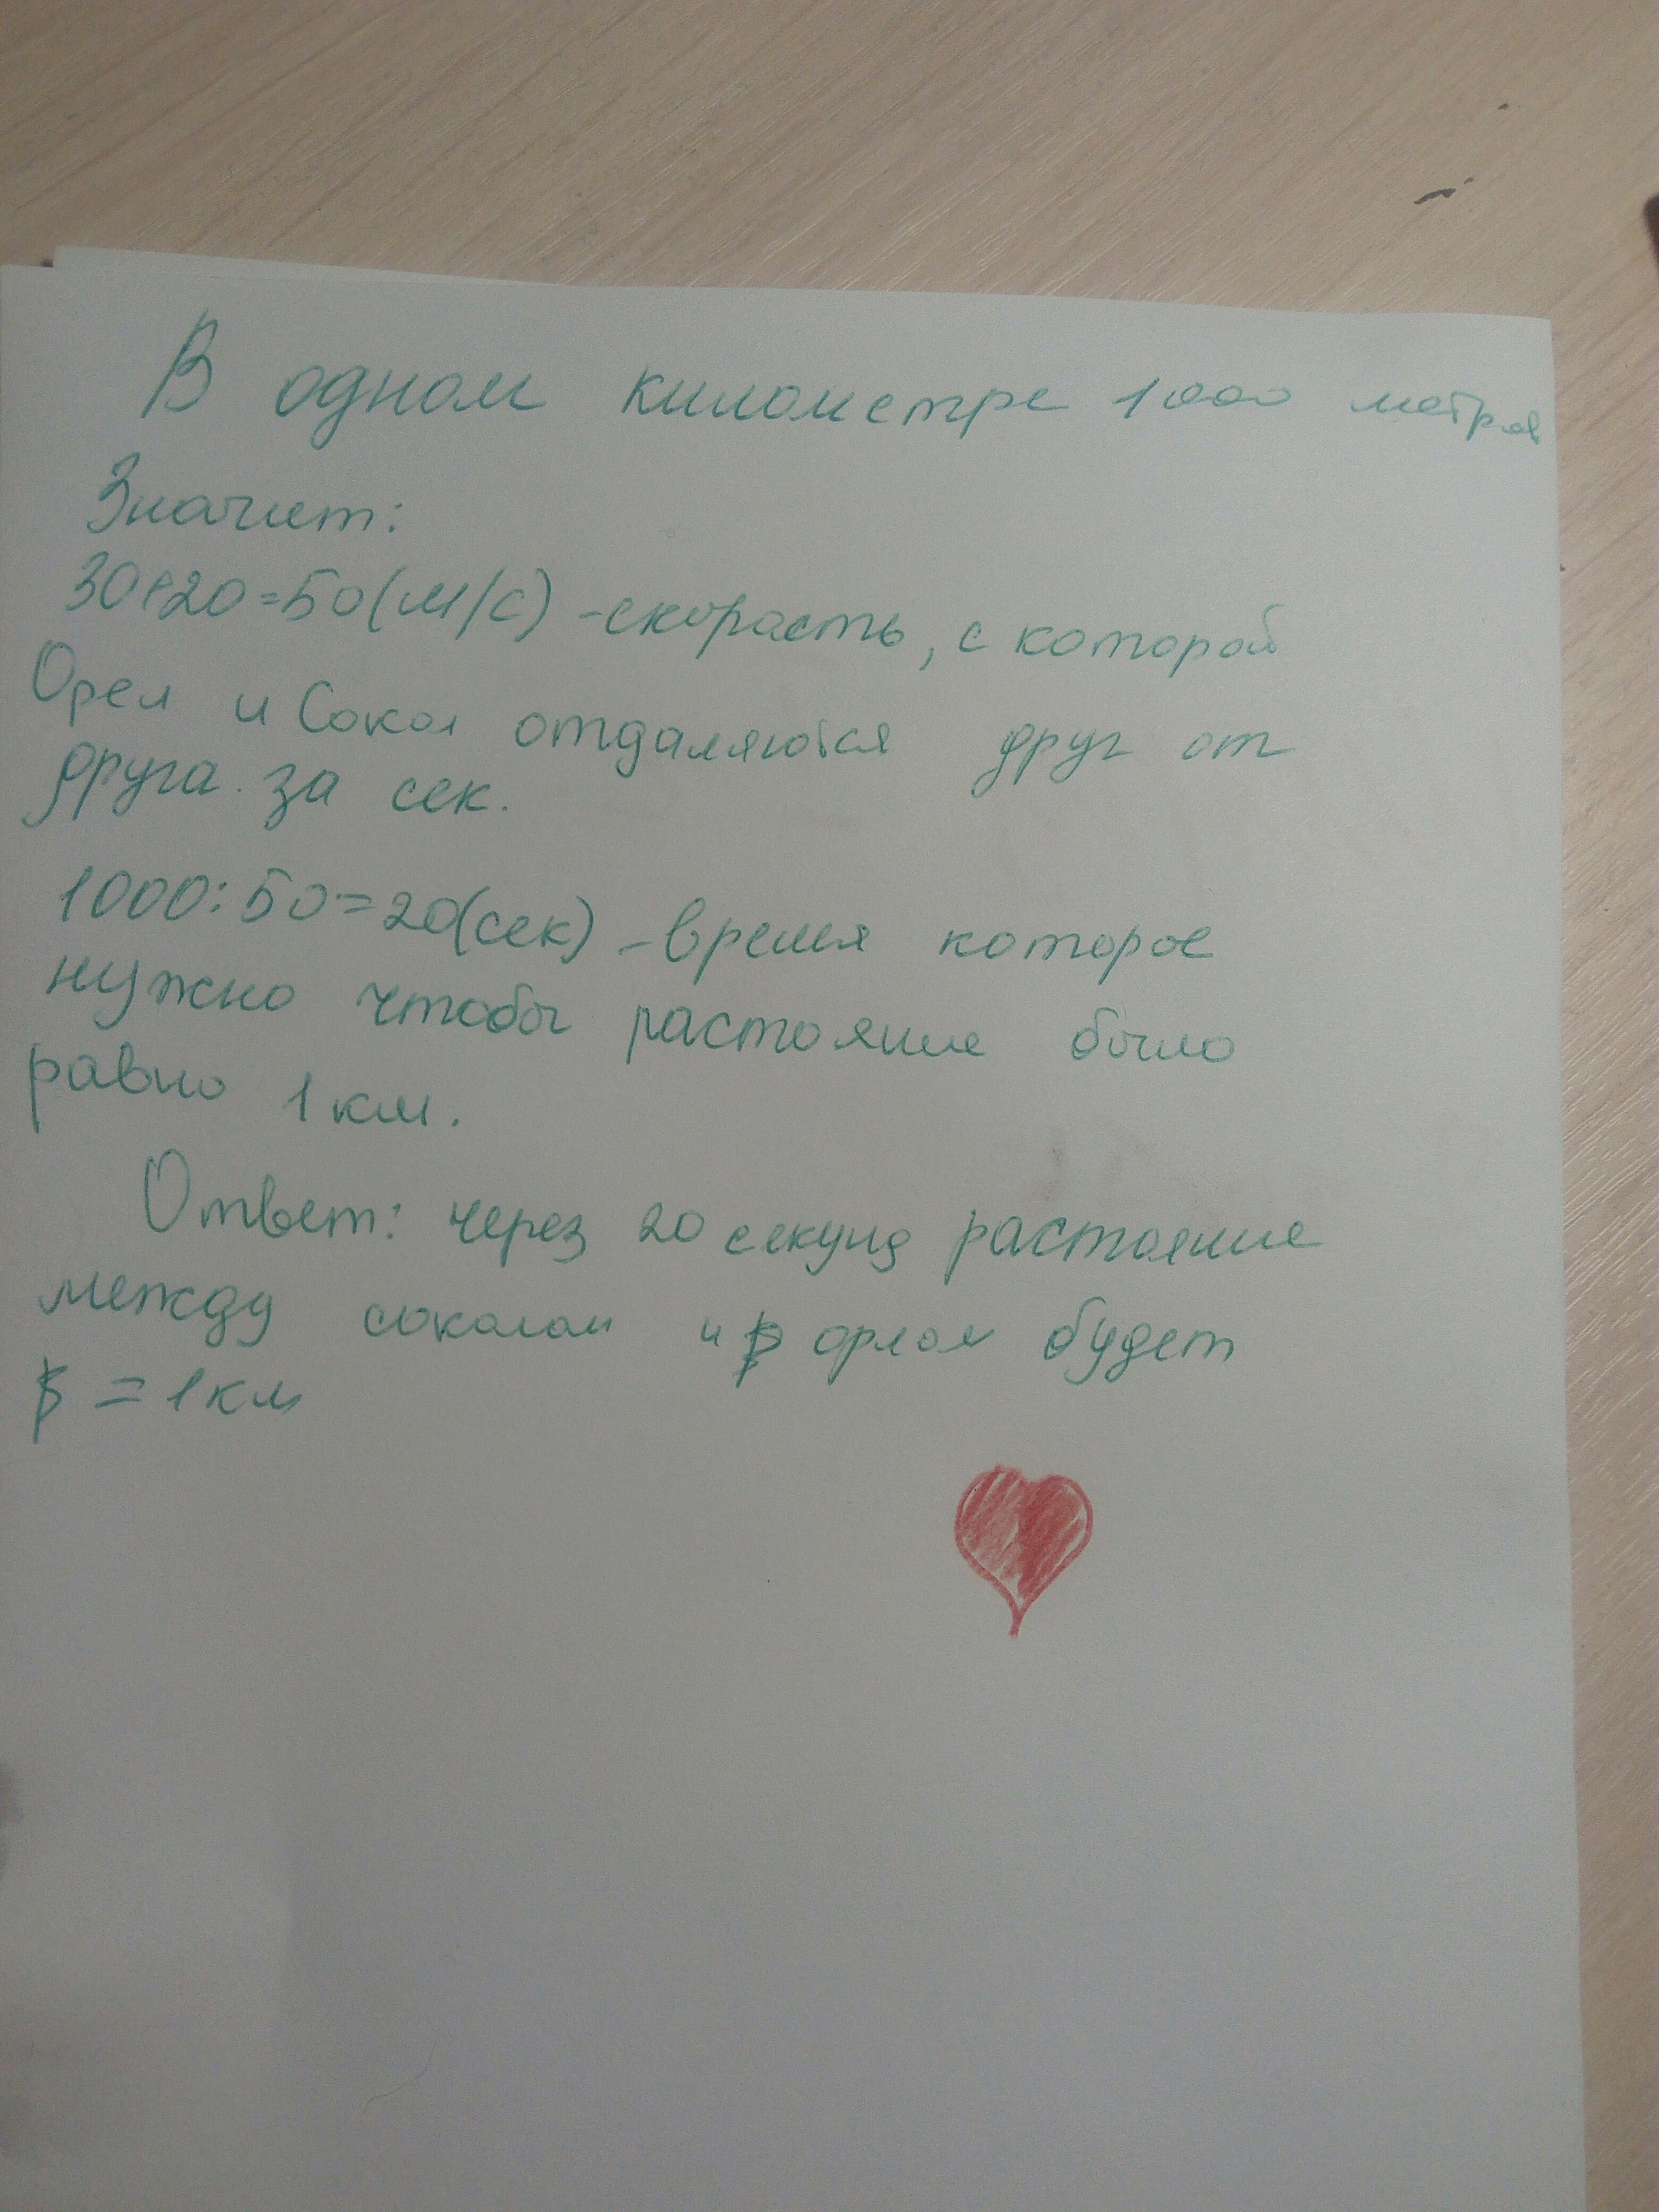 В одном километре 1000 метров
Значит:
30+20=50(м/с) -скорасть, с которой
Орел и Сокол отдаляются друг от
друга за сек.
1000:50=20(сек) -время которое
нужно чтобы растояние было
равно 1 км.
Ответ: через 20 секунд растояние
между соколом и орлом будет
= 1 км